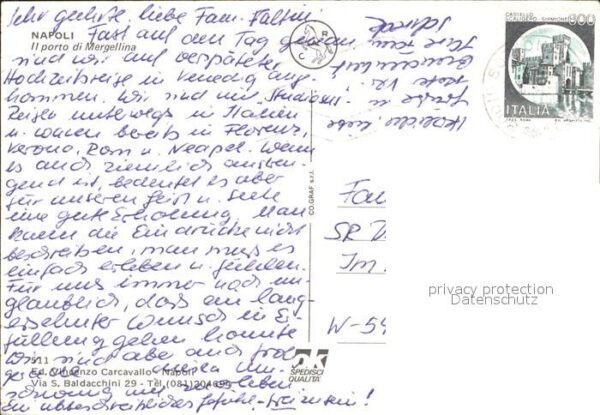 Sehr geehrte, liebe Fam.
NAPOLI
Il porto di Mergellina
Fast auf den Tag genau
sind wir auf verspäteter
Hochzeitsreise in Venedig ange-
kommen. Wir sind mit "Studiosus"
Reisen unterwegs in Italien
u. waren bereits in Florenz,
Verona, Rom u. Neapel. Wenn
es auch ziemlich anstren-
gend ist, bedeutet es aber
für unseren Geist u. Seele
eine gute Erholung. Man
kann die Eindrücke nicht
beschreiben, man muss es
einfach erleben u. fühlen.
Für uns immer noch un-
glaublich, dass ein lang-
ersehnter Wunsch in Er-
füllung gehen konnte
Wir sind aber auch froh
zu leben
Ein unbeschreibliches Gefühl - frei zu sein!
Herzliche liebe
Grüsse
Ihre
511
Ed. Vincenzo Carcavallo - Napoli
Via S. Baldacchini 29 - Tel. (081) 204695
CO.GRAF s.r.l.
R
C
SPEDISCI
QUALITA'
CASTELLO
SCALIGERO - SIRMIONE
600
ITALIA
Fam
SR
Im
W-54
privacy protection
Datenschutz